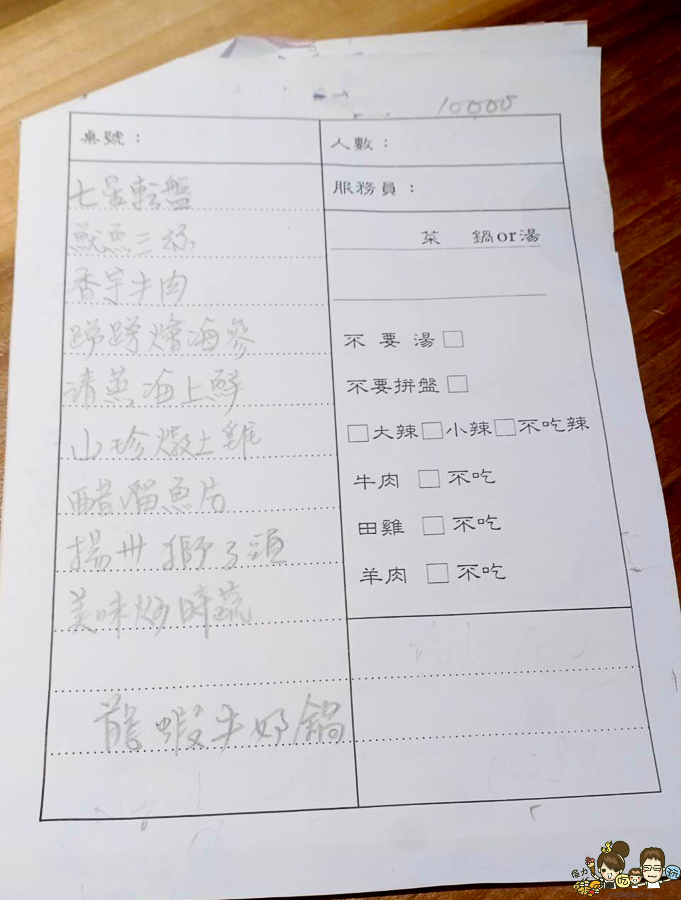 10000
桌號：
人數：
服務員：
七星転盤
魷魚三杯
香芋牛肉
蹄蹄燴海參
請蒸海上鮮
山珍燉土雞
醋溜魚片
揚州獅子頭
美味炒時蔬
龍蝦牛奶鍋
菜 鍋or湯
不要湯□
不要拼盤□
□大辣□小辣□不吃辣
牛肉 □不吃
田雞 □不吃
羊肉 □不吃